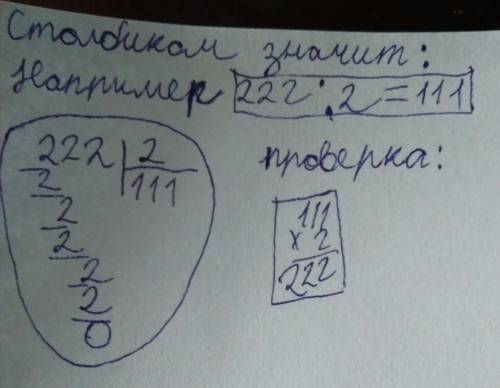 Столбиком значит:
Например 222:2=111
222 2
2 111
2
2
2
2
0
проверка:
111
x 2
222